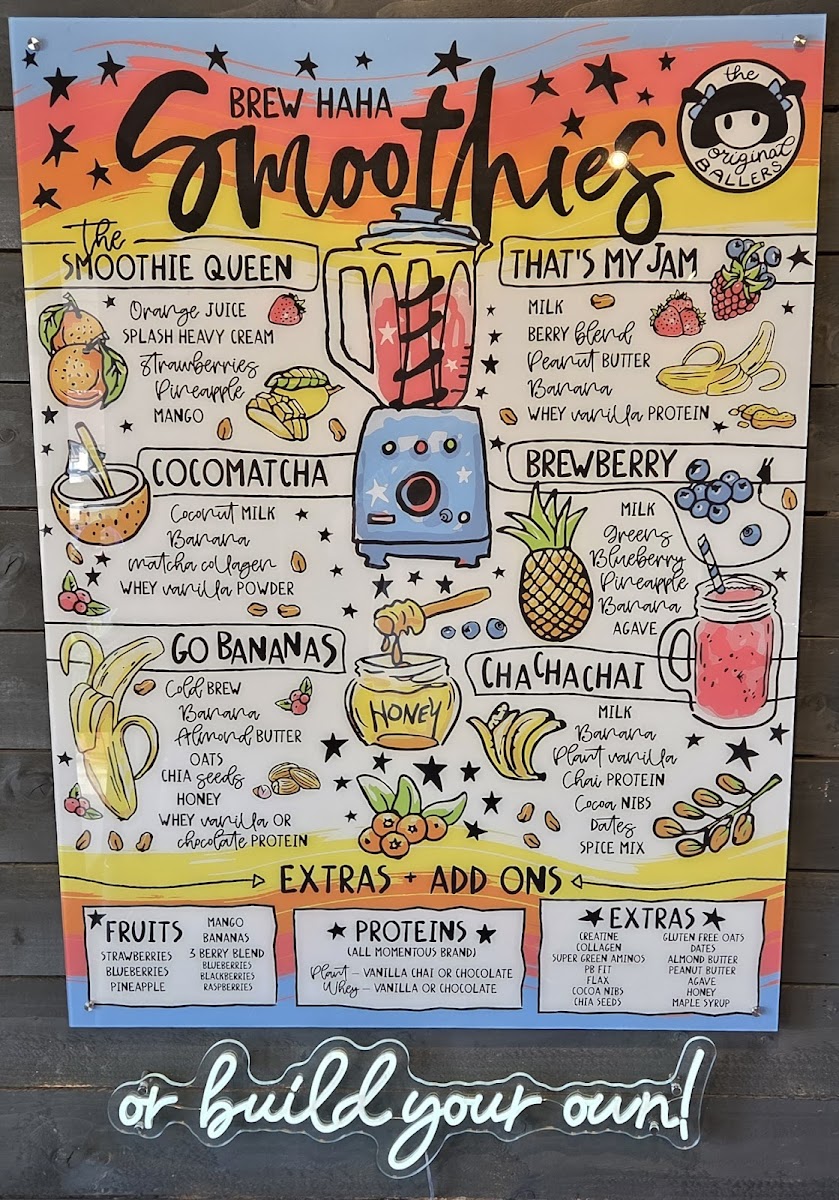 BREW HAHA
Smoothies
the
original
BALLERS
the
SMOOTHIE QUEEN
Orange JUICE
SPLASH HEAVY CREAM
Strawberries
Pineapple
MANGO
THAT'S MY JAM
MILK
BERRY blend
Peanut BUTTER
Banana
WHEY vanilla PROTEIN
COCOMATCHA
Coconut MILK
Banana
matcha collagen
WHEY vanilla POWDER
BREWBERRY
MILK
greens
Blueberry
Pineapple
Banana
AGAVE
GO BANANAS
Cold BREW
Banana
Almond BUTTER
OATS
CHIA seeds
HONEY
WHEY vanilla OR
chocolate PROTEIN
HONEY
CHACHACHAI
MILK
Banana
Plant vanilla
Chai PROTEIN
Cocoa NIBS
Dates
SPICE MIX
EXTRAS + ADD ONS
FRUITS
STRAWBERRIES
BLUEBERRIES
PINEAPPLE
MANGO
BANANAS
3 BERRY BLEND
BLUEBERRIES
BLACKBERRIES
RASPBERRIES
PROTEINS
(ALL MOMENTOUS BRAND)
Plant – VANILLA CHAI OR CHOCOLATE
Whey – VANILLA OR CHOCOLATE
EXTRAS
CREATINE
COLLAGEN
SUPER GREEN AMINOS
PB FIT
FLAX
COCOA NIBS
CHIA SEEDS
GLUTEN FREE OATS
DATES
ALMOND BUTTER
PEANUT BUTTER
AGAVE
HONEY
MAPLE SYRUP
or build your own!